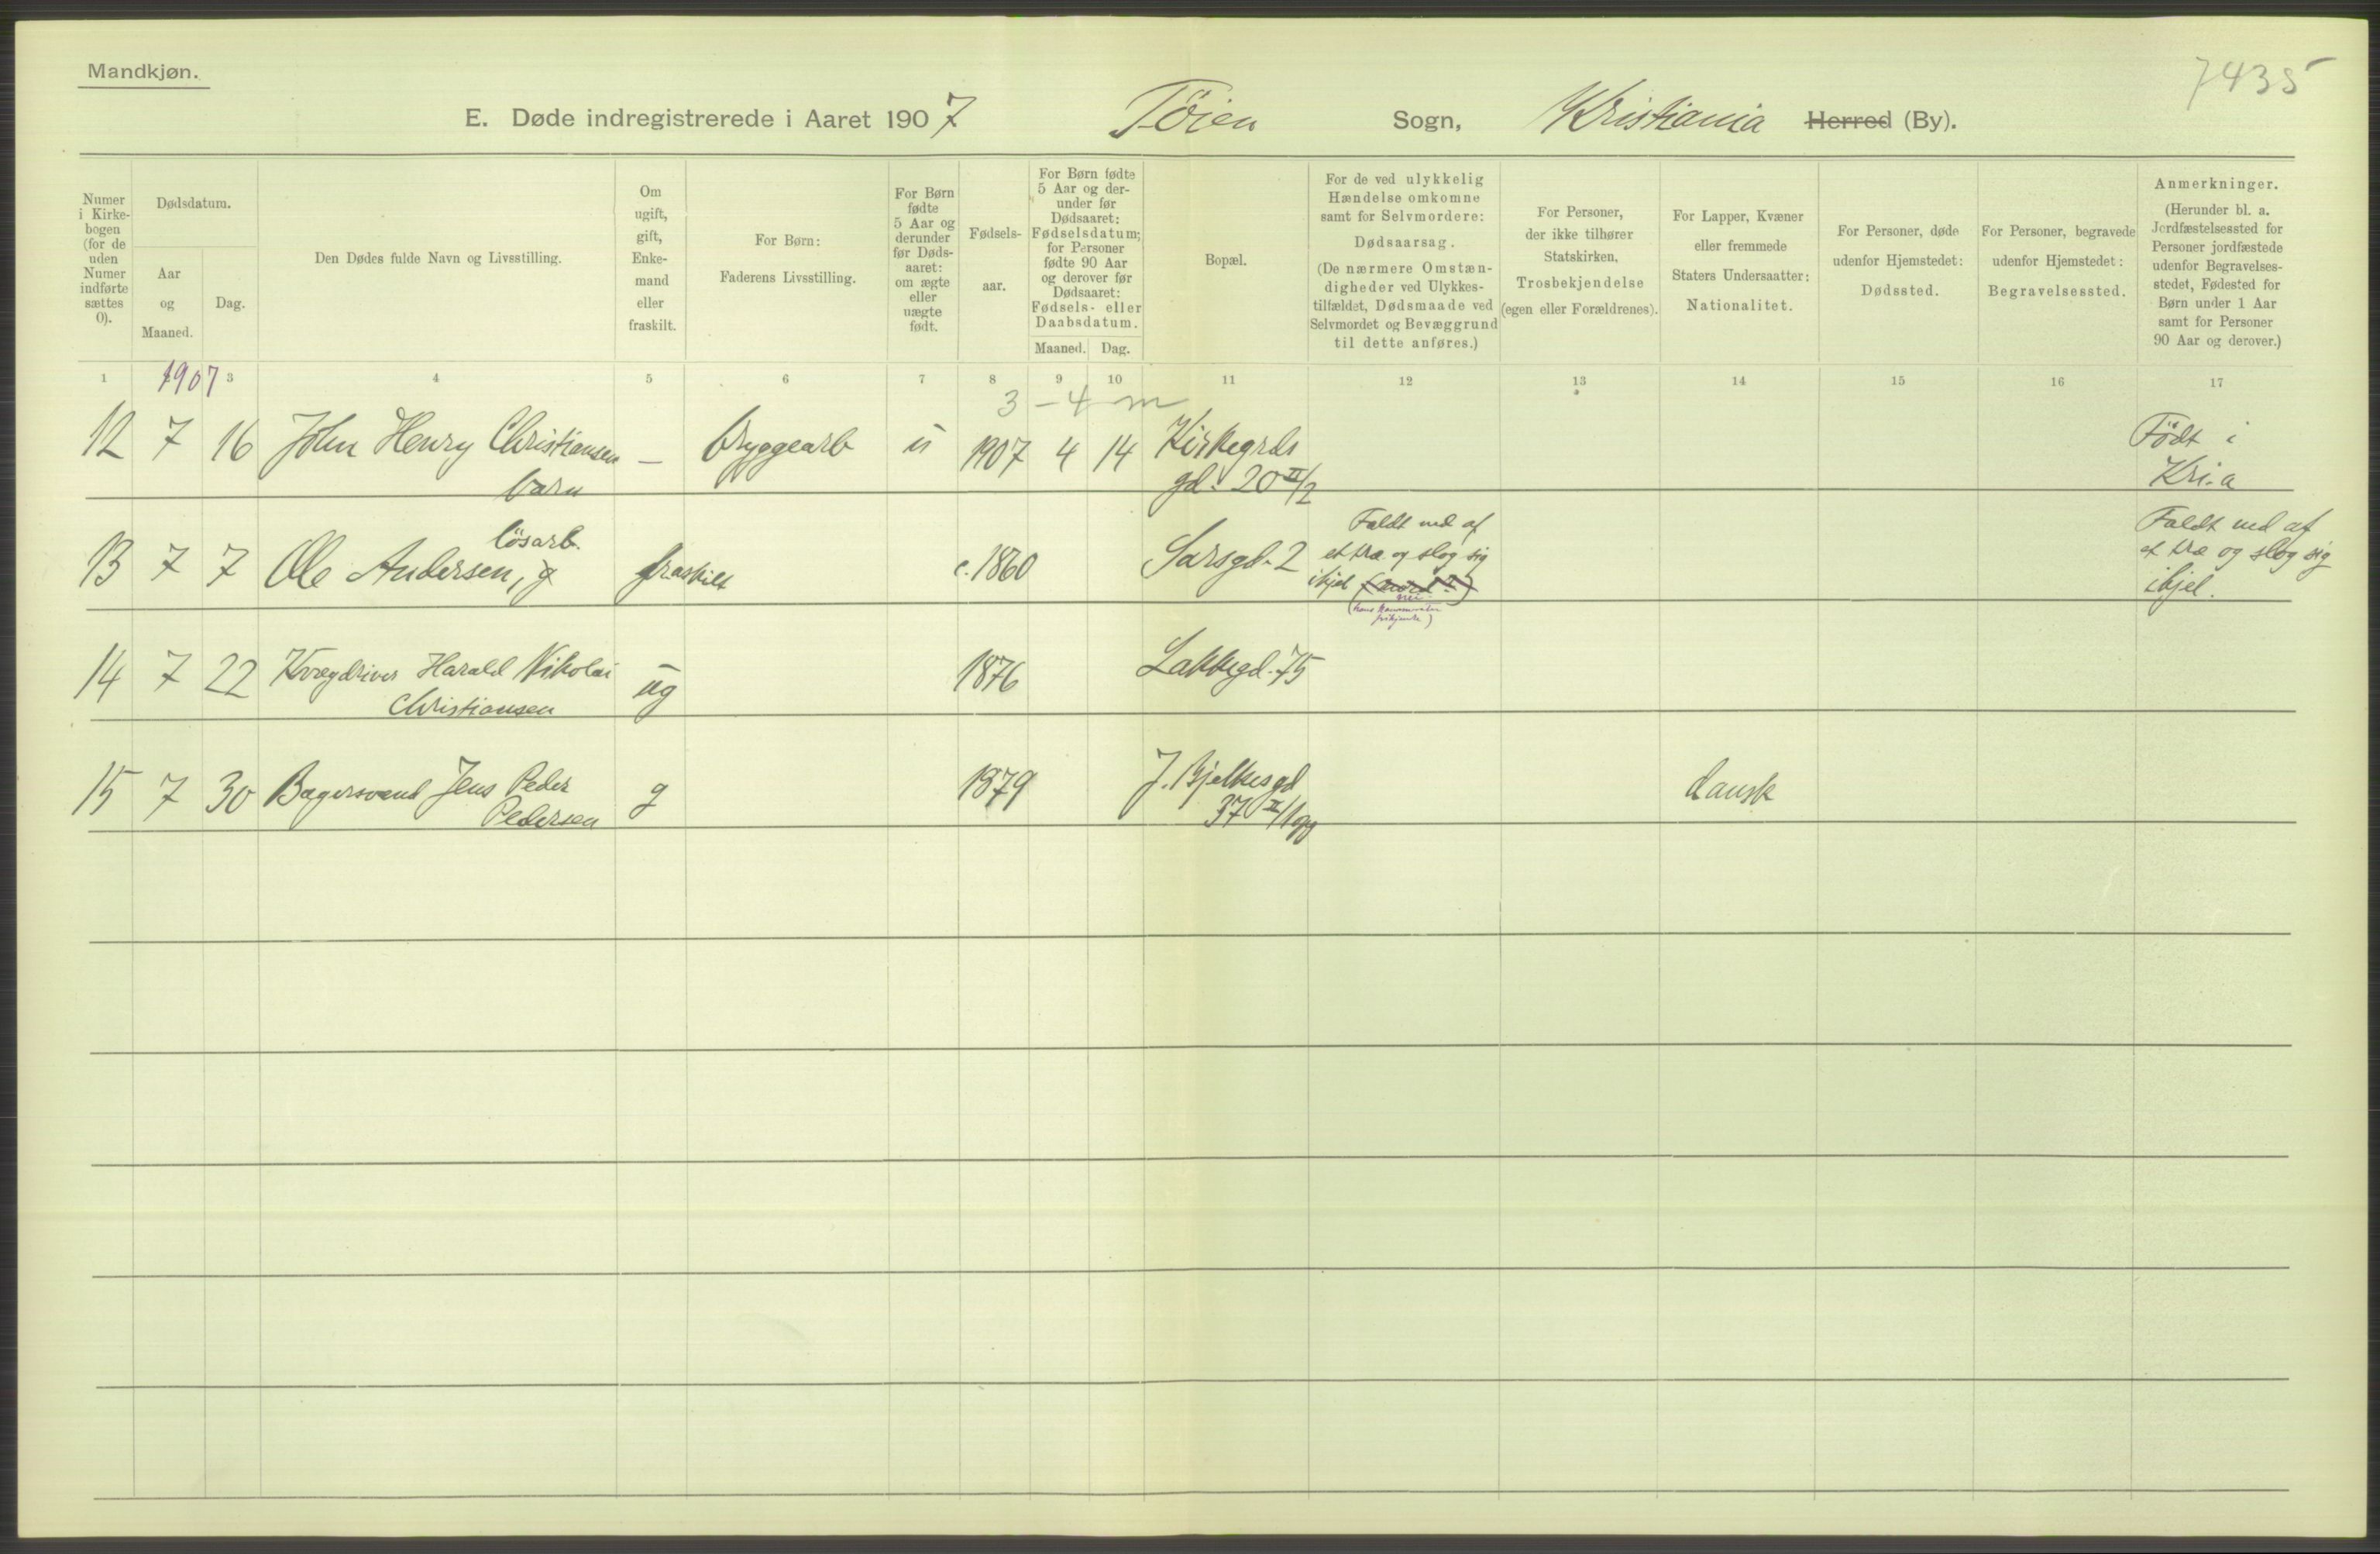 Mandkjøn.
7435
E. Døde indregistrerede i Aaret 1907 Töien Sogn, Kristiania Herred (By).
Numer
i Kirke-
bogen
(for de
uden
Numer
indførte
sættes
0).
Dødsdatum.
Aar
og
Maaned.
Dag.
Den Dødes fulde Navn og Livsstilling.
Om
ugift,
gift,
Enke-
mand
eller
fraskilt.
For Børn:
Faderens Livsstilling.
For Børn
fødte
5 Aar og
derunder
før Døds-
aaret:
om ægte
eller
uægte
født.
Fødsels-
aar.
For Børn fødte
5 Aar og der-
under før
Dødsaaret:
Fødselsdatum;
for Personer
fødte 90 Aar
og derover før
Dødsaaret:
Fødsels- eller
Daabsdatum.
Maaned. Dag.
Bopæl.
For de ved ulykkelig
Hændelse omkomne
samt for Selvmordere:
Dødsaarsag.
(De nærmere Omstæn-
digheder ved Ulykkes-
tilfældet, Dødsmaade ved
Selvmordet og Bevæggrund
til dette anføres.)
For Personer,
der ikke tilhører
Statskirken,
Trosbekjendelse
(egen eller Forældrenes).
For Lapper, Kvæner
eller fremmede
Staters Undersaatter:
Nationalitet.
For Personer, døde
udenfor Hjemstedet:
Dødssted.
For Personer, begravede
udenfor Hjemstedet:
Begravelsessted.
Anmerkninger.
(Herunder bl. a.
Jordfæstelsessted for
Personer jordfæstede
udenfor Begravelses-
stedet, Fødested for
Børn under 1 Aar
samt for Personer
90 Aar og derover.)
1 1907 3 4 5 6 7 8 9 10 11 12 13 14 15 16 17
3 – 4 m
12 7 16 John Henry Christiansen — Bryggearb ü 1907 4 14 Kirkegrds Född i
barn gd. 20 II/2 Kri.a
lösarb. Faldt ned af Faldt ned af
13 7 7 Ole Andersen, g fraskilt c. 1860 Sarsgd. 2 et træ og slog sig et træ og slog sig
ihjel (mord?) ihjel.
nei
14 7 22 Kvægdriver Harald Nikolai ug 1876 Lakkegd. 75
Christiansen
15 7 30 Bagersvend Jens Peder g 1879 J. Bjelkesgd dansk
Pedersen 37 II/1